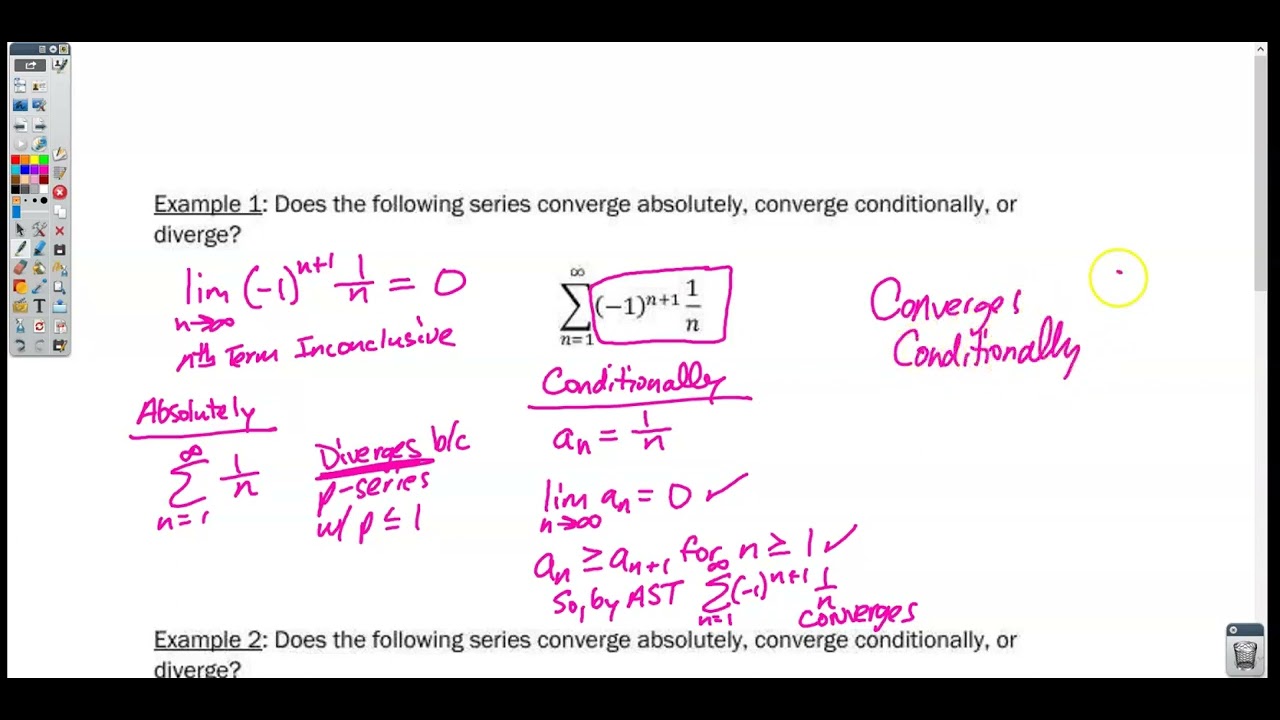 Example 1: Does the following series converge absolutely, converge conditionally, or
diverge?
lim n→∞ (-1)^{n+1} 1/n = 0
nth Term Inconclusive
∞ ∑ n=1 (−1)^{n+1} 1/n
Converges
Conditionally
Absolutely
∞ ∑ n=1 1/n
Diverges b/c
p-series
w/ p ≤ 1
Conditionally
a_n = 1/n
lim n→∞ a_n = 0 ✓
a_n ≥ a_{n+1} for n ≥ 1 ✓
So, by AST ∞ ∑ n=1 (-1)^{n+1} 1/n
converges
Example 2: Does the following series converge absolutely, converge conditionally, or
diverge?